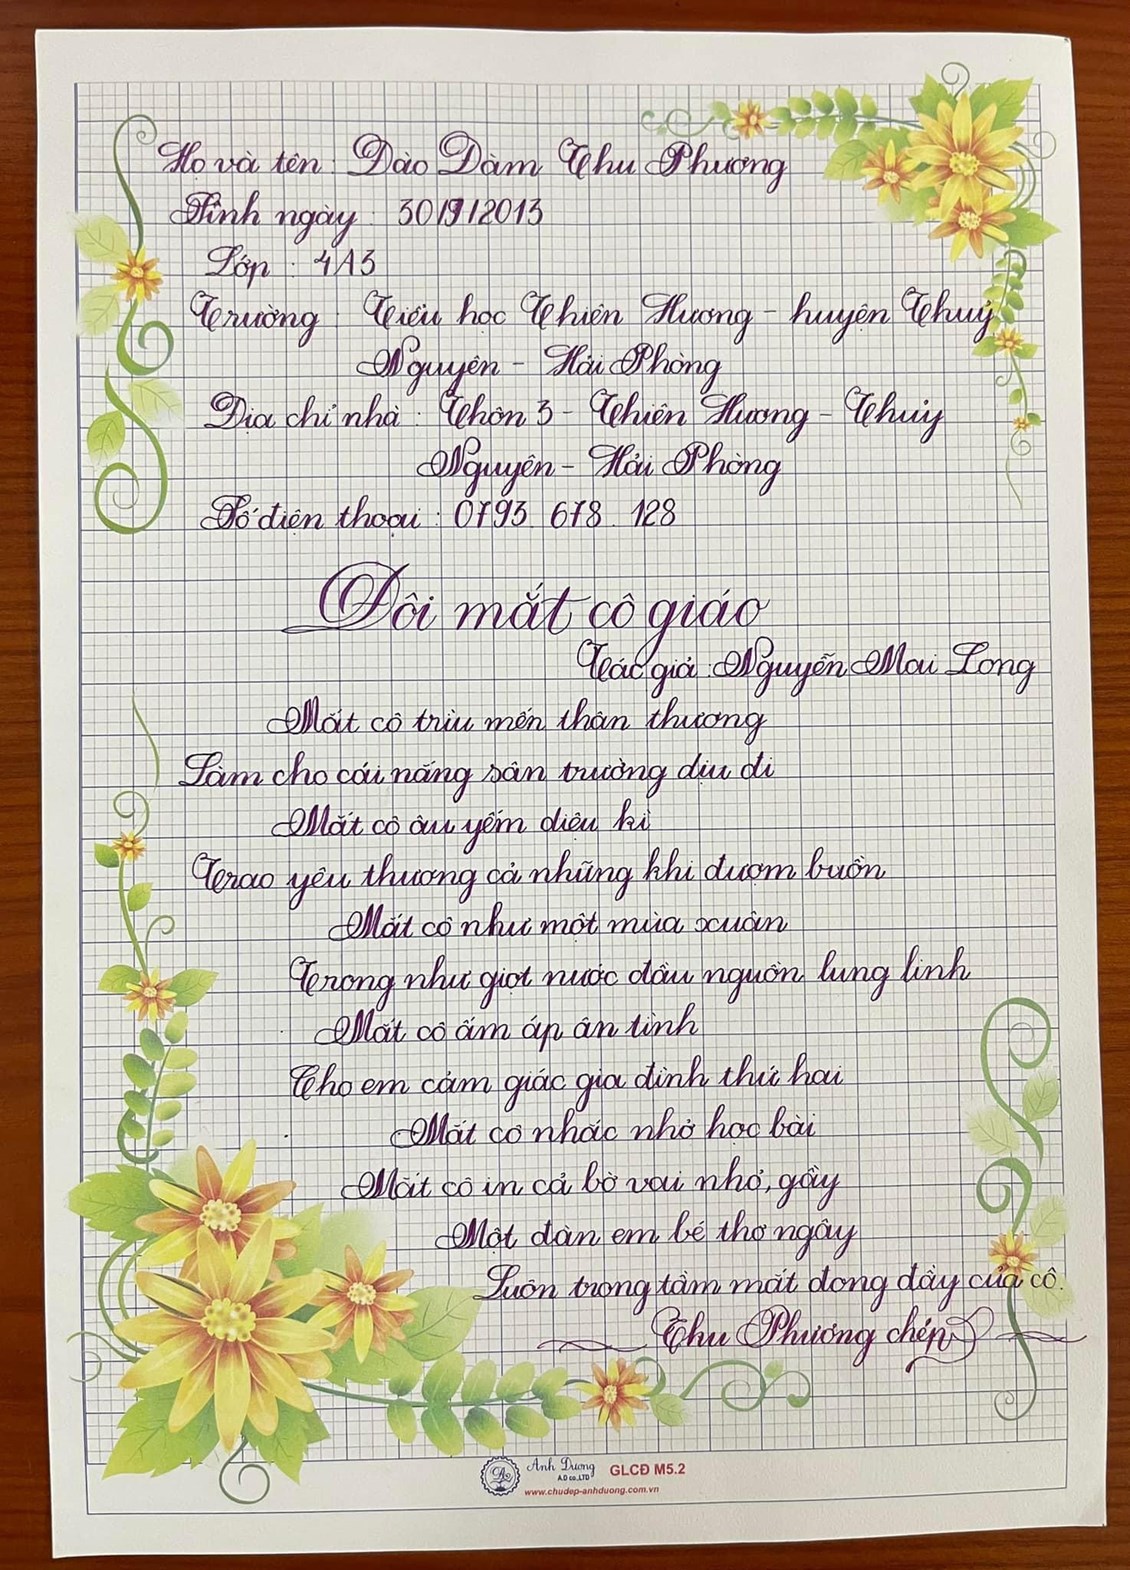 Họ và tên : Đào Đàm Thu Phương
Sinh ngày : 30/9/2013
Lớp : 4A3
Trường : Tiểu học Thiên Hương - huyện Thuỷ
Nguyên - Hải Phòng
Địa chỉ nhà : Thôn 3 - Thiên Hương - Thuỷ
Nguyên - Hải Phòng
Số điện thoại : 0793 678 128
Đôi mắt cô giáo
Tác giả : Nguyễn Mai Long
Mắt cô trìu mến thân thương
Làm cho cái nắng sân trường dịu đi
Mắt cô âu yếm diệu kì
Trao yêu thương cả những khi đượm buồn
Mắt cô như một mùa xuân
Trong như giọt nước đầu nguồn lung linh
Mắt cô ấm áp ân tình
Cho em cảm giác gia đình thứ hai
Mắt cô nhắc nhở học bài
Mắt cô in cả bờ vai nhỏ, gầy
Một đàn em bé thơ ngây
Luôn trong tầm mắt dong đầy của cô.
Thu Phương chép
Ánh Dương
A.D co.,LTD
GLCĐ M5.2
www.chudep-anhduong.com.vn